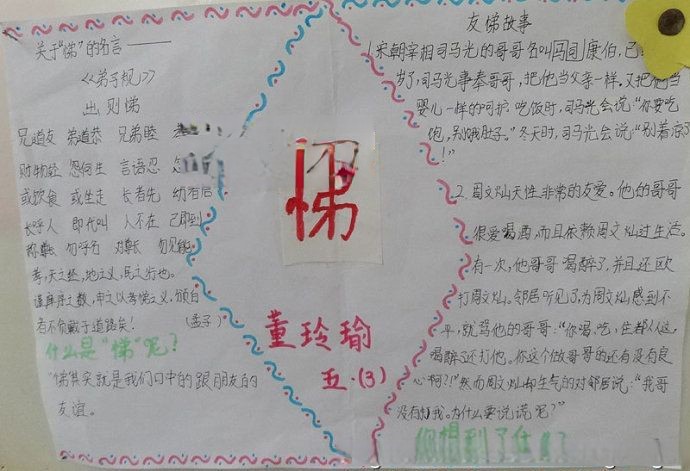 关于“悌”的名言——
《弟子规》
出则悌
兄道友 弟道恭 兄弟睦
财物轻 怨何生 言语忍
或饮食 或坐走 长者先 幼者后
长呼人 即代叫 人不在 己即到
称尊长 勿呼名 对尊长 勿见能
孝，天之经，地之义，民之行也。
谨庠序之教，申之以孝悌之义，颁白
者不负戴于道路矣！ （孟子）
什么是“悌”呢？
“悌其实就是我们口中的跟朋友的
友谊。
悌
董玲瑜
五·(3)
友悌故事
1宋朝宰相司马光的哥哥名叫司马康伯，已
岁了，司马光事奉哥哥，把他当父亲一样，又把他当
婴儿一样的呵护。吃饭时，司马光会说：“你要吃
饱，别饿肚子。”冬天时，司马光会说：“别着凉了
！”
2. 周文灿天性非常的友爱。他的哥哥
很爱喝酒，而且依赖周文灿过生活。
有一次，他哥哥喝醉了，并且还欧
打周文灿。邻居听见了，为周文灿感到不
平，就骂他的哥哥：“你喝、吃、住都从这，
喝醉了还打他。你这个做哥哥的还有没有良
心啊？！”然而周文灿却生气的对邻居说：“我哥
没有打我。为什么要说谎呢？”
你想到了什